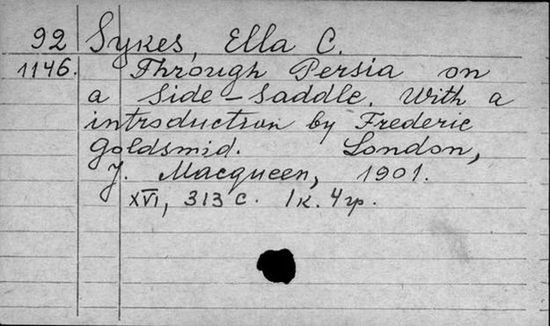 92 Sykes, Ella C.
1146. Through Persia on
a Side-Saddle. With a
introduction by Frederic
Goldsmid. London,
J. Macqueen, 1901.
XVI, 313 с. 1к. 4 гр.